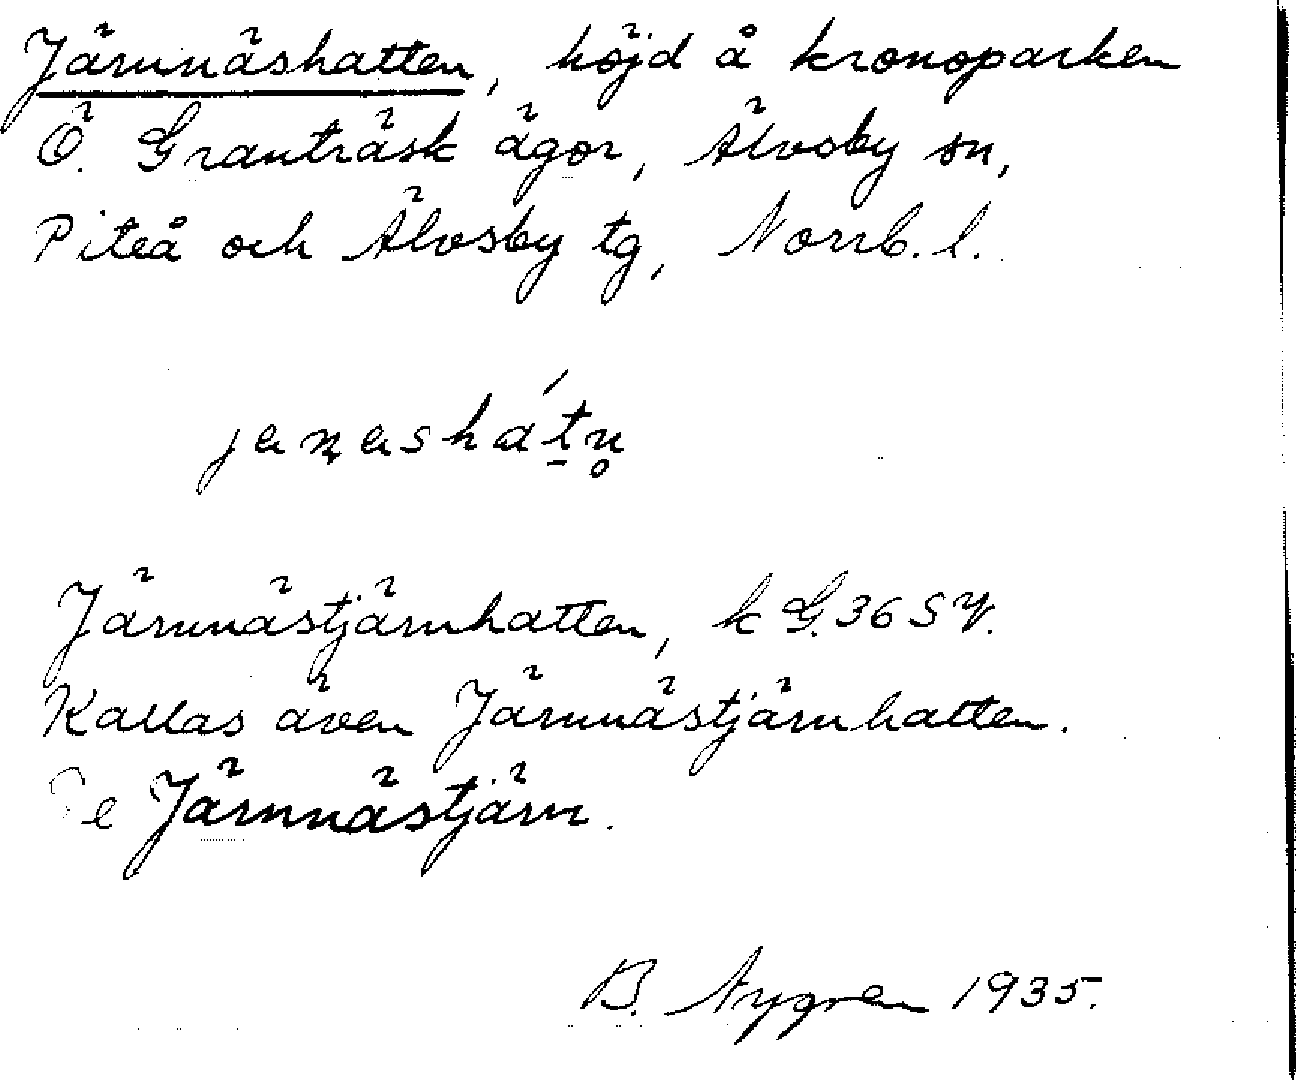 Järnnäshatten, höjd å kronoparken
Ö. Granträsk ägor, Älvsby sn,
Piteå och Älvsby tg, Norrb. l.
Järnnästjärnhatten, k G. 36 SV.
Kallas även Järnnästjärnhatten.
Se Järnnästjärn.
B. Nygren 1935.